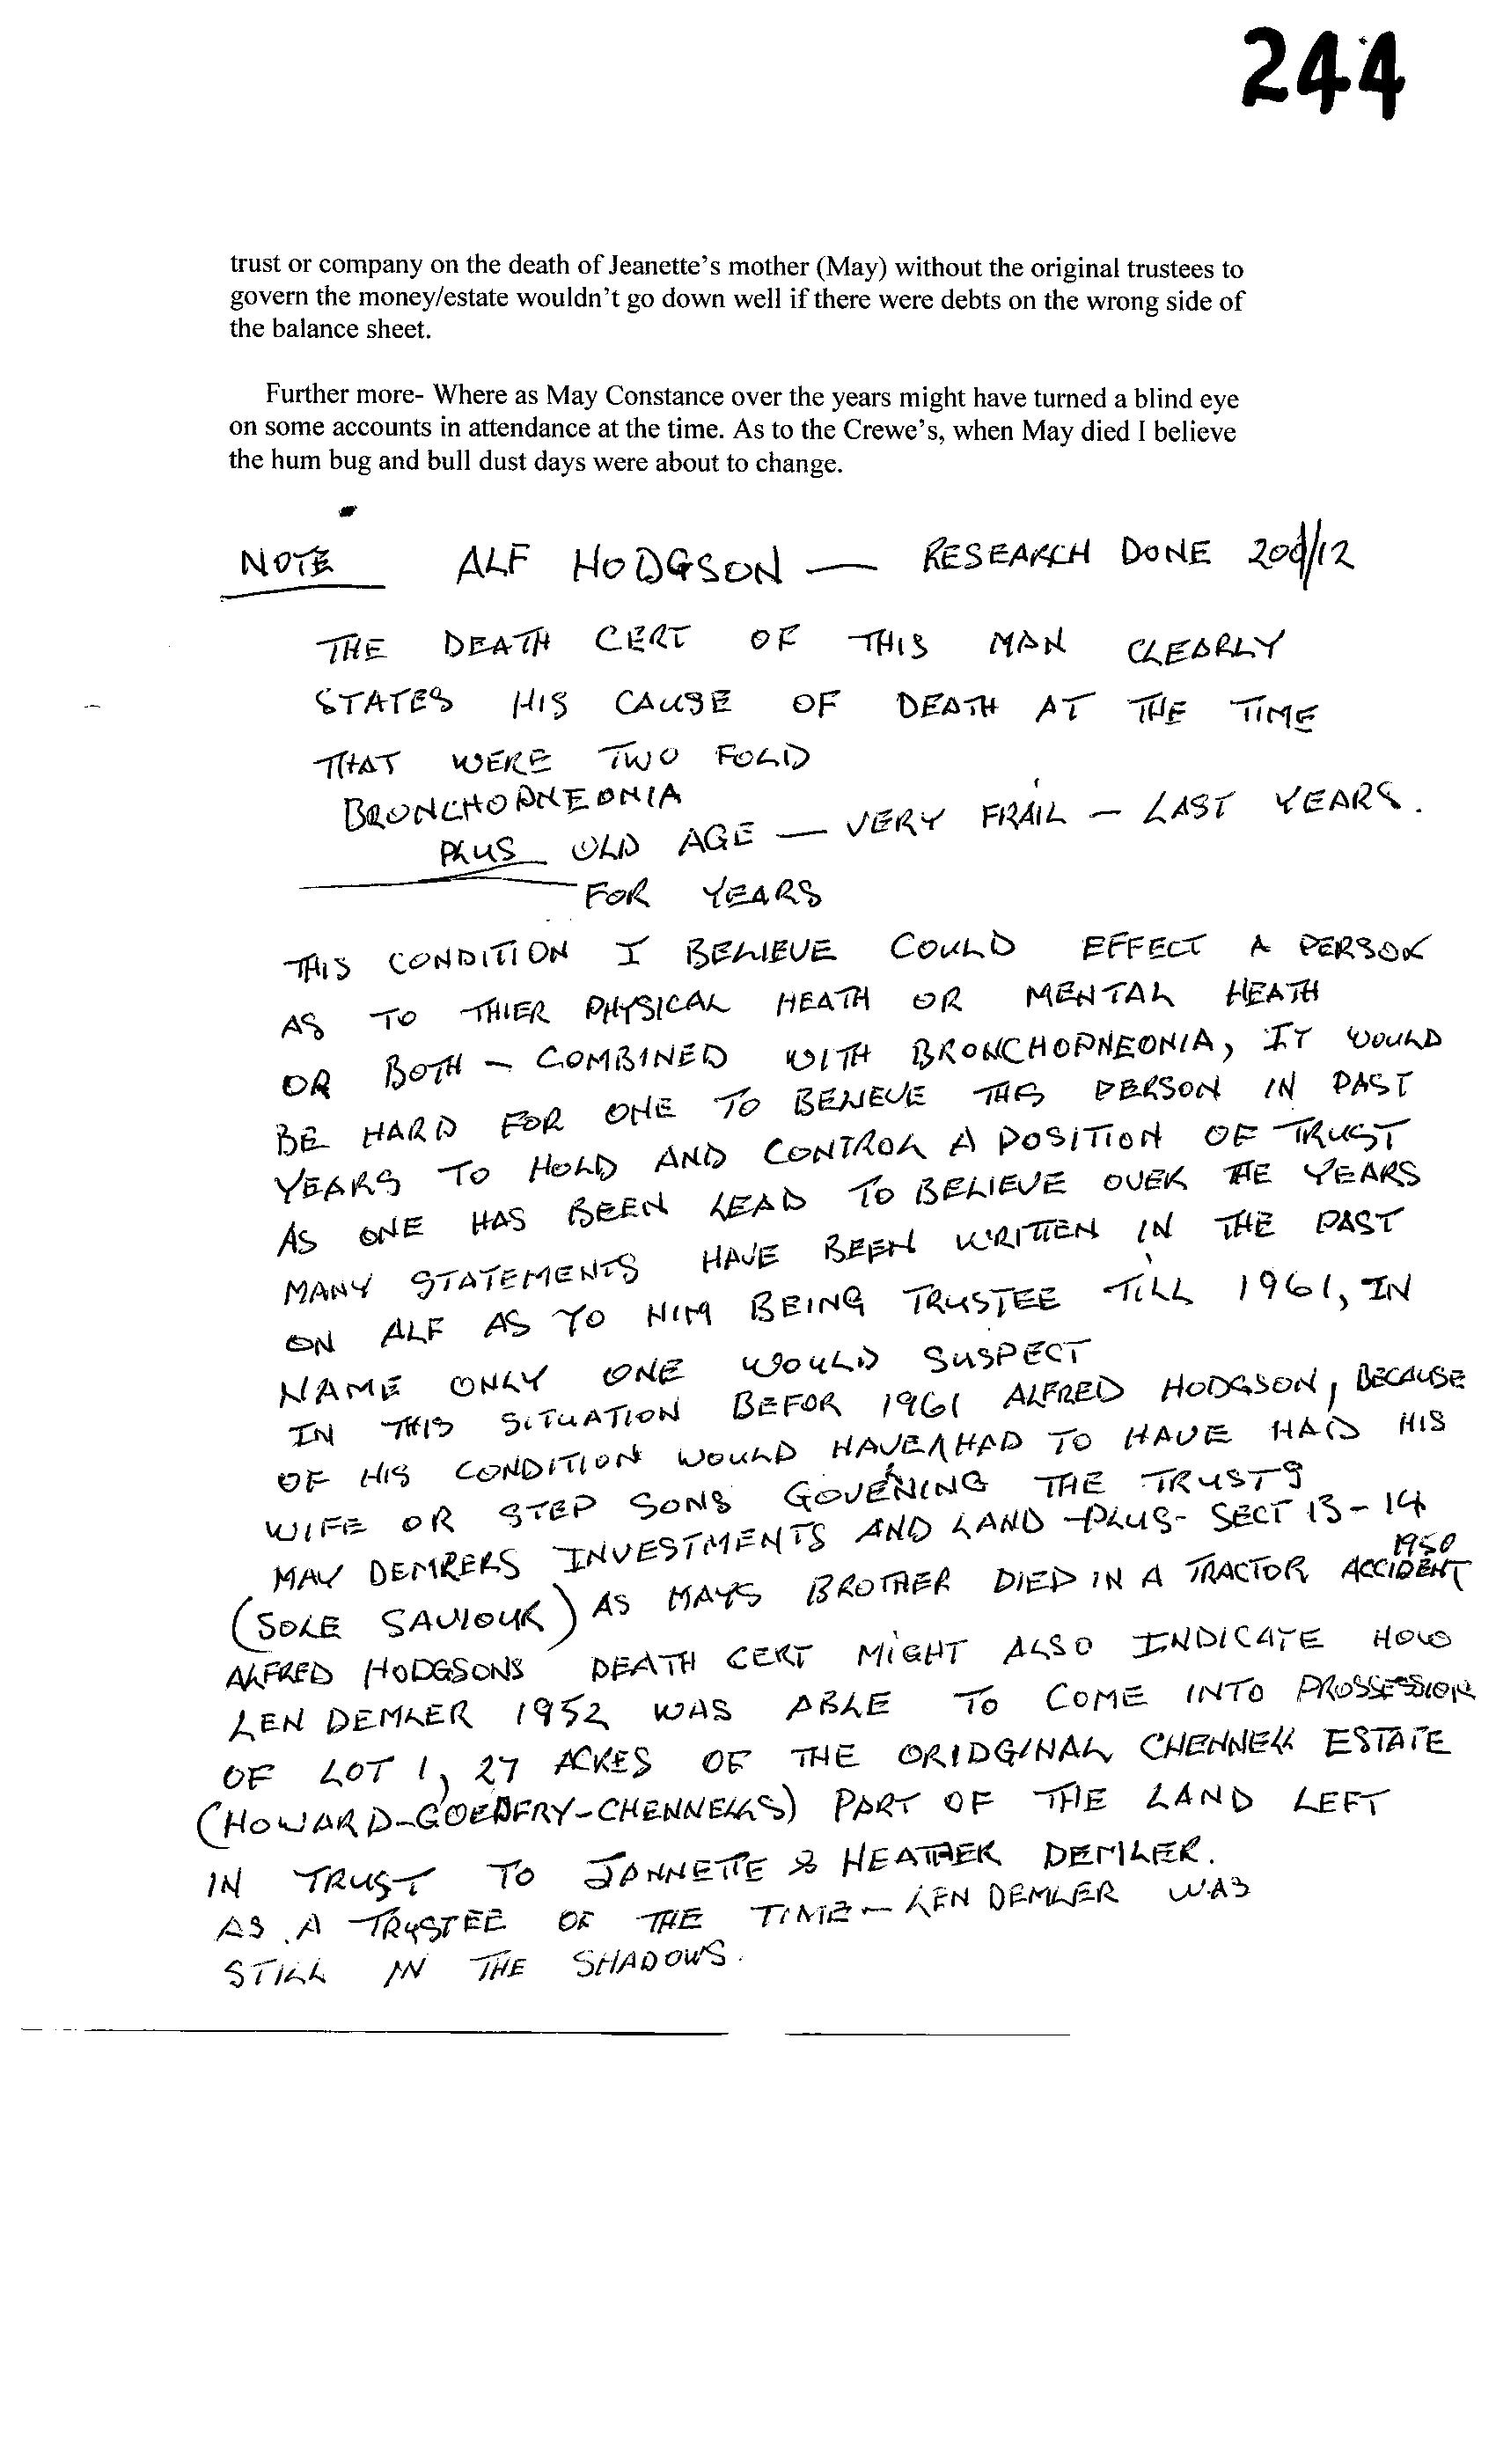 244
trust or company on the death of Jeanette's mother (May) without the original trustees to
govern the money/estate wouldn't go down well if there were debts on the wrong side of
the balance sheet.
Further more- Where as May Constance over the years might have turned a blind eye
on some accounts in attendance at the time. As to the Crewe's, when May died I believe
the hum bug and bull dust days were about to change.
NOTE ALF HODGSON — RESEARCH DONE
THE DEATH CERT OF THIS MAN CLEARLY
STATES HIS CAUSE OF DEATH AT THE TIME
THAT WERE TWO FOLD
BRONCHOPNEONIA
PLUS OLD AGE — VERY FRAIL — LAST YEARS.
FOR YEARS
THIS CONDITION I BELIEVE COULD EFFECT A PERSON
AS TO THIER PHYSICAL HEATH OR MENTAL HEATH
OR BOTH - COMBINED WITH BRONCHOPNEONIA, IT WOULD
BE HARD FOR ONE TO BELIEVE THIS PERSON IN PAST
YEARS TO HOLD AND CONTROL A POSITION OF TRUST
AS ONE HAS BEEN LEAD TO BELIEVE OVER THE YEARS
MANY STATEMENTS HAVE BEEN WRITTEN IN THE PAST
ON ALF AS TO HIM BEING TRUSTEE TILL 1961, IN
NAME ONLY ONE WOULD SUSPECT
IN THIS SITUATION BEFOR 1961 ALFRED HODGSON, BECAUSE
OF HIS CONDITION WOULD HAVE HAD TO HAVE HAD HIS
WIFE OR STEP SONS GOVENING THE TRUSTS
MAY DEMLERS INVESTMENTS AND LAND -PLUS- SECT 13-14
(SOLE SAVIOUR) AS MAYS BROTHER DIED IN A TRACTOR ACCIDENT 1950
ALFRED HODGSONS DEATH CERT MIGHT ALSO INDICATE HOW
LEN DEMLER 1952 WAS ABLE TO COME INTO PROSSESSION
OF LOT 1, 27 ACRES OF THE ORIDGINAL CHENNELL ESTATE
(HOWARD-GOEDFRY-CHENNELLS) PART OF THE LAND LEFT
IN TRUST TO JANNETTE & HEATHER DEMLER.
AS A TRUSTEE OF THE TIME — LEN DEMLER WAS
STILL IN THE SHADOWS.